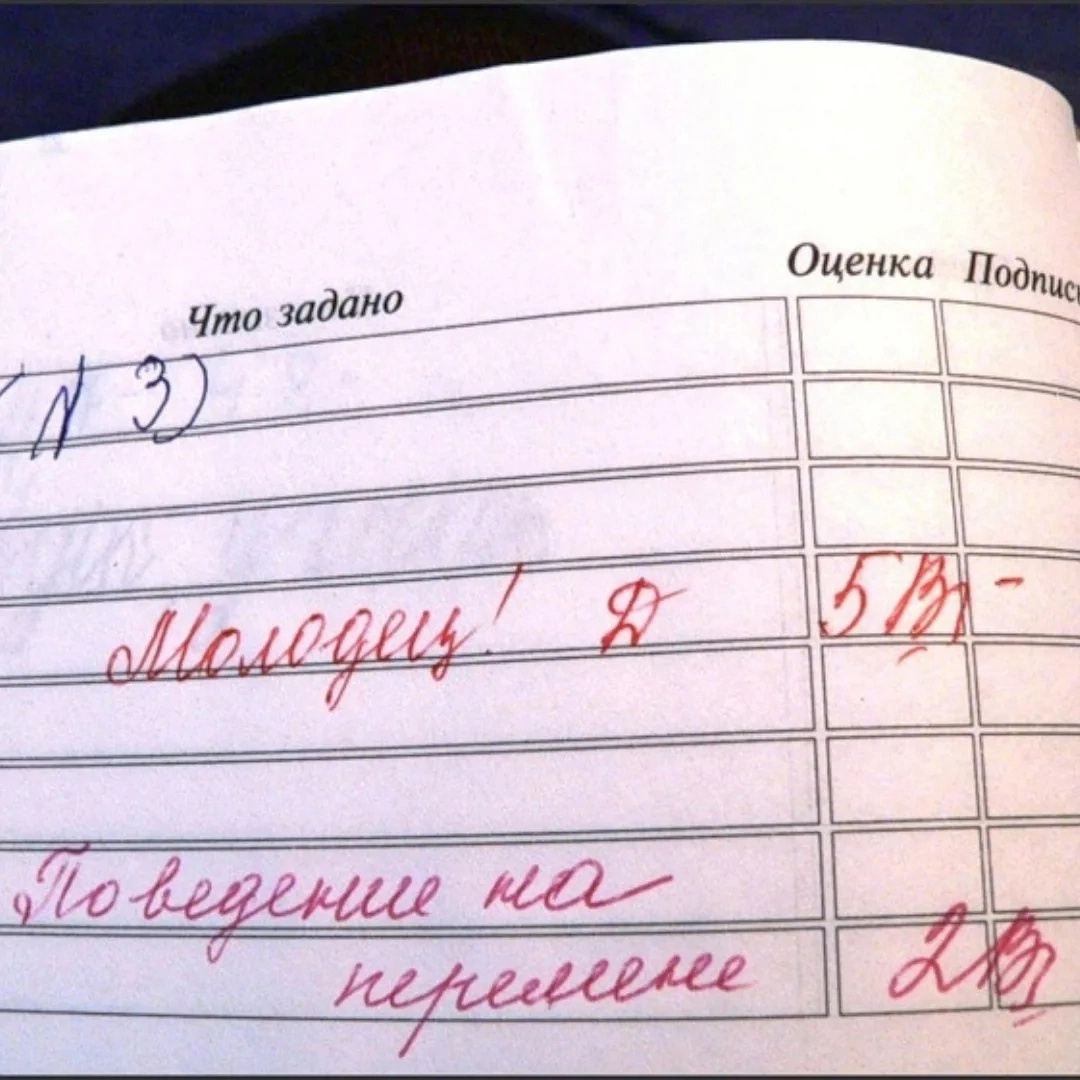 Что задано Оценка Подпись
(N 3)
Молодец! Д 5 Вл-
Поведение на
перемене 2